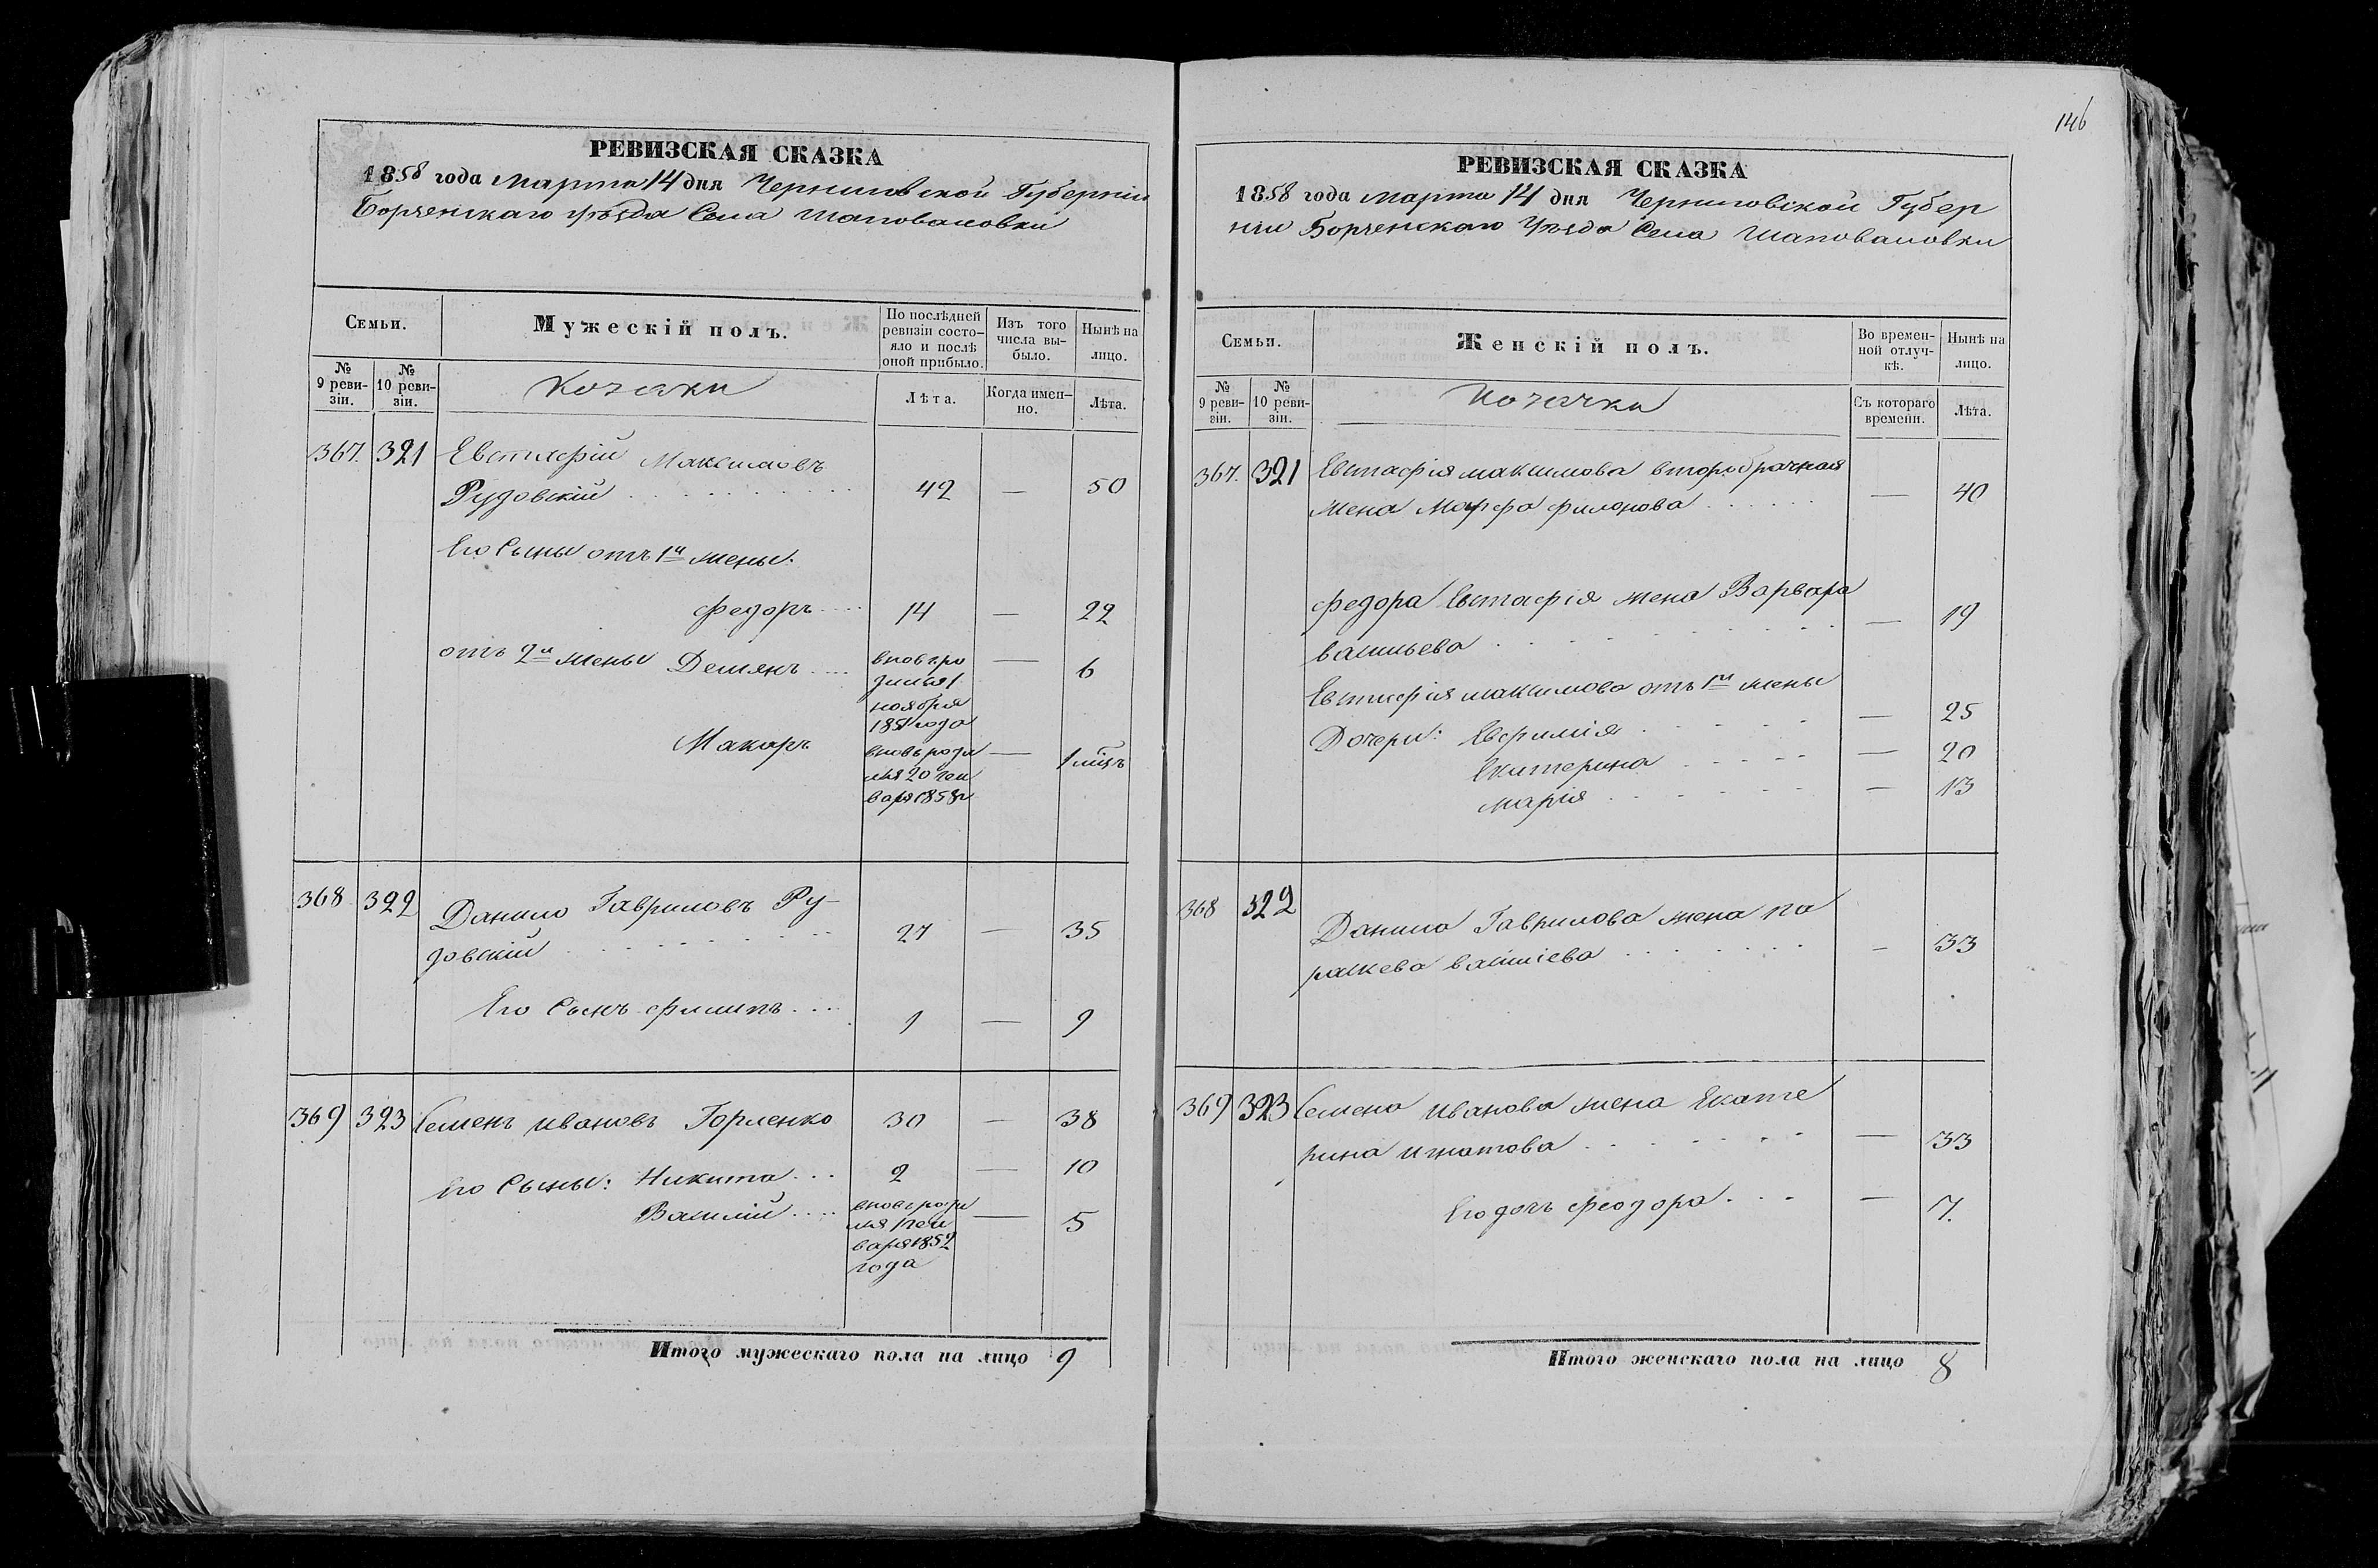 РЕВИЗСКАЯ СКАЗКА
1858 года Марта 14 дня Черниговской Губерніи
Борзенскаго Уѣзда Села Шаповаловки
Семьи.
Мужескій полъ.
По послѣдней ревизіи состояло и послѣ оной прибыло.
Изъ того числа выбыло.
Нынѣ на лицо.
№ 9 ревизіи.
№ 10 ревизіи.
Козаки
Лѣта.
Когда именно.
Лѣта.
367. 321 Евстафій Максимовъ
Рудовскій 42 — 50
Его Сыны отъ 1й жены:
Федоръ 14 — 22
отъ 2й жены Демянъ вновь ро — 6
дился 1
ноября
1851 года
Макаръ вновь роди — 1 мцъ
лся 20 ген
варя 1858 г
368 322 Данило Гавриловъ Ру-
довскій 27 — 35
Его Сынъ Филипъ 1 — 9
369 323 Семенъ Ивановъ Горленко 30 — 38
Его Сыны: Никита 2 — 10
Василій вновь роди — 5
лся 1 ген
варя 1852
года
Итого мужескаго пола на лицо 9
146
РЕВИЗСКАЯ СКАЗКА
1858 года Марта 14 дня Черниговской Губер
ніи Борзенскаго Уѣзда Села Шаповаловки
Семьи.
Женскій полъ.
Во временной отлучкѣ.
Нынѣ на лицо.
№ 9 ревизіи.
№ 10 ревизіи.
Козачки
Съ котораго времени.
Лѣта.
367. 321 Евстафія Максимова второбрачная
жена Марфа Филонова — 40
Федора Евстафія жена Варвара
Васильева — 19
Евстафія Максимова отъ 1й жены
Дочери: Евфимія — 25
Екатерина — 20
Марія — 13
368 322 Данила Гаврилова жена Па
раскева Василіева — 33
369 323 Семена Иванова жена Екате
рина Игнатова — 33
Его дочь Феодора — 7.
Итого женскаго пола на лицо 8